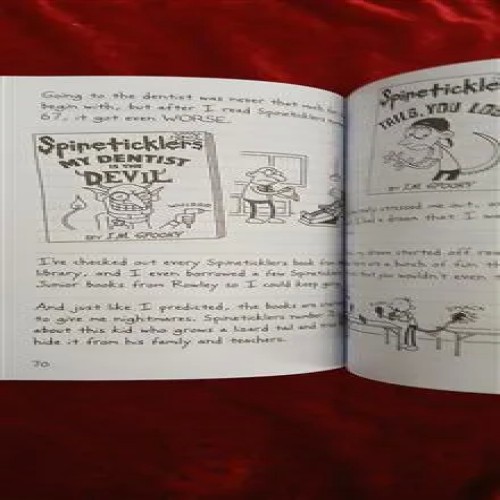 Going to the dentist was never that much
begin with, but after I read Spineticklers
67, it got even WORSE.
Spineticklers
MY DENTIST
IS THE
DEVIL
BY I.M. SPOOKY
I've checked out every Spineticklers book
library, and I even borrowed a few Spineticklers
Junior books from Rowley so I could keep going
And just like I predicted, the books are
to give me nightmares. Spineticklers number
about this kid who grows a lizard tail and
hide it from his family and teachers.
70
Spinetickle
TAILS, YOU LO
BY I.M. SPOOKY
stressed me out, a
had a dream that I wa
dream started off rea
on a bunch of fun th
but you wouldn't even